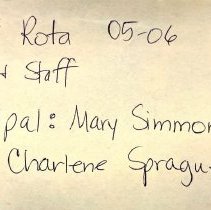 Rota 05-06
Staff
pal: Mary Simmon
Charlene Spragu